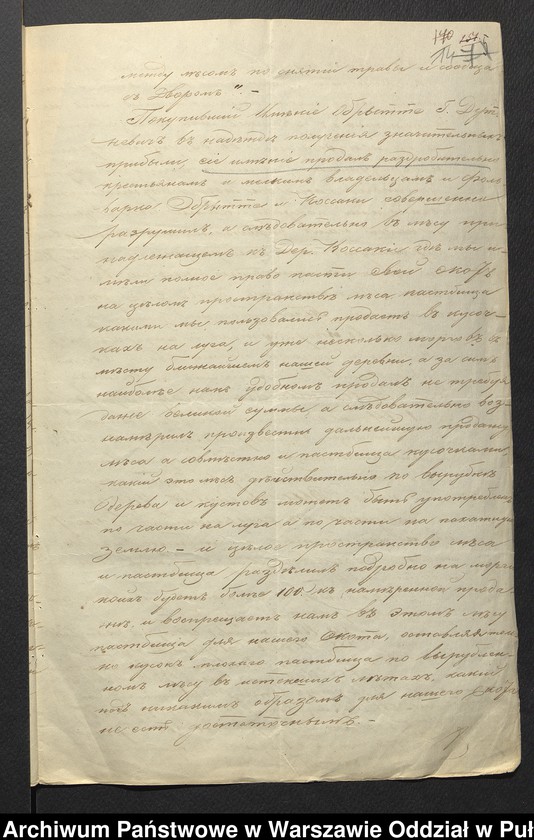 между лѣсомъ по снятіи травы и сообща
съ Дворомъ" –
Покупившій Имѣніе Обрытте Г.
въ надеждѣ полученія значительныхъ
прибыли, сіе имѣніе продалъ раздробительно
крестьянамъ и мелкимъ владельцамъ и Фоль
варки Обрытте и Коссаки совершенно
разрушилъ, а слѣдовательно въ лѣсу при
надлежащемъ къ Дер. Коссаки гдѣ мы и-
мѣли полное право пасти свой скотъ
на цѣломъ пространствѣ лѣса пастбища
какими мы пользовались продастъ въ кусоч-
кахъ на луга, и уже нѣсколько морговъ въ
мѣсту ближайшемъ нашей деревни, а за симъ
наиболѣе намъ удобномъ продалъ не требуя
даже великой суммы а слѣдовательно воз
намѣрилъ произвести дальнейшую продажу
лѣса а совмѣстно и пастбища кусочками,
какій это лѣсъ дѣйствительно по вырубкѣ
дерева и кустовъ можетъ быть употребленъ
по части на луга а по части на пахатную
землю – и цѣлое пространство лѣса
и пастбища раздѣлилъ подробно на морги
коихъ будетъ болѣе 100 къ намѣренной прода
жѣ, и воспрещаетъ намъ въ этомъ лѣсу
пастбища для нашего скота, оставляя
но кусокъ плохаго пастбища по вырублен-
номъ лѣсу въ лѣтахъ, какій
никакимъ образомъ для нашего скота
не есть достаточнымъ. –